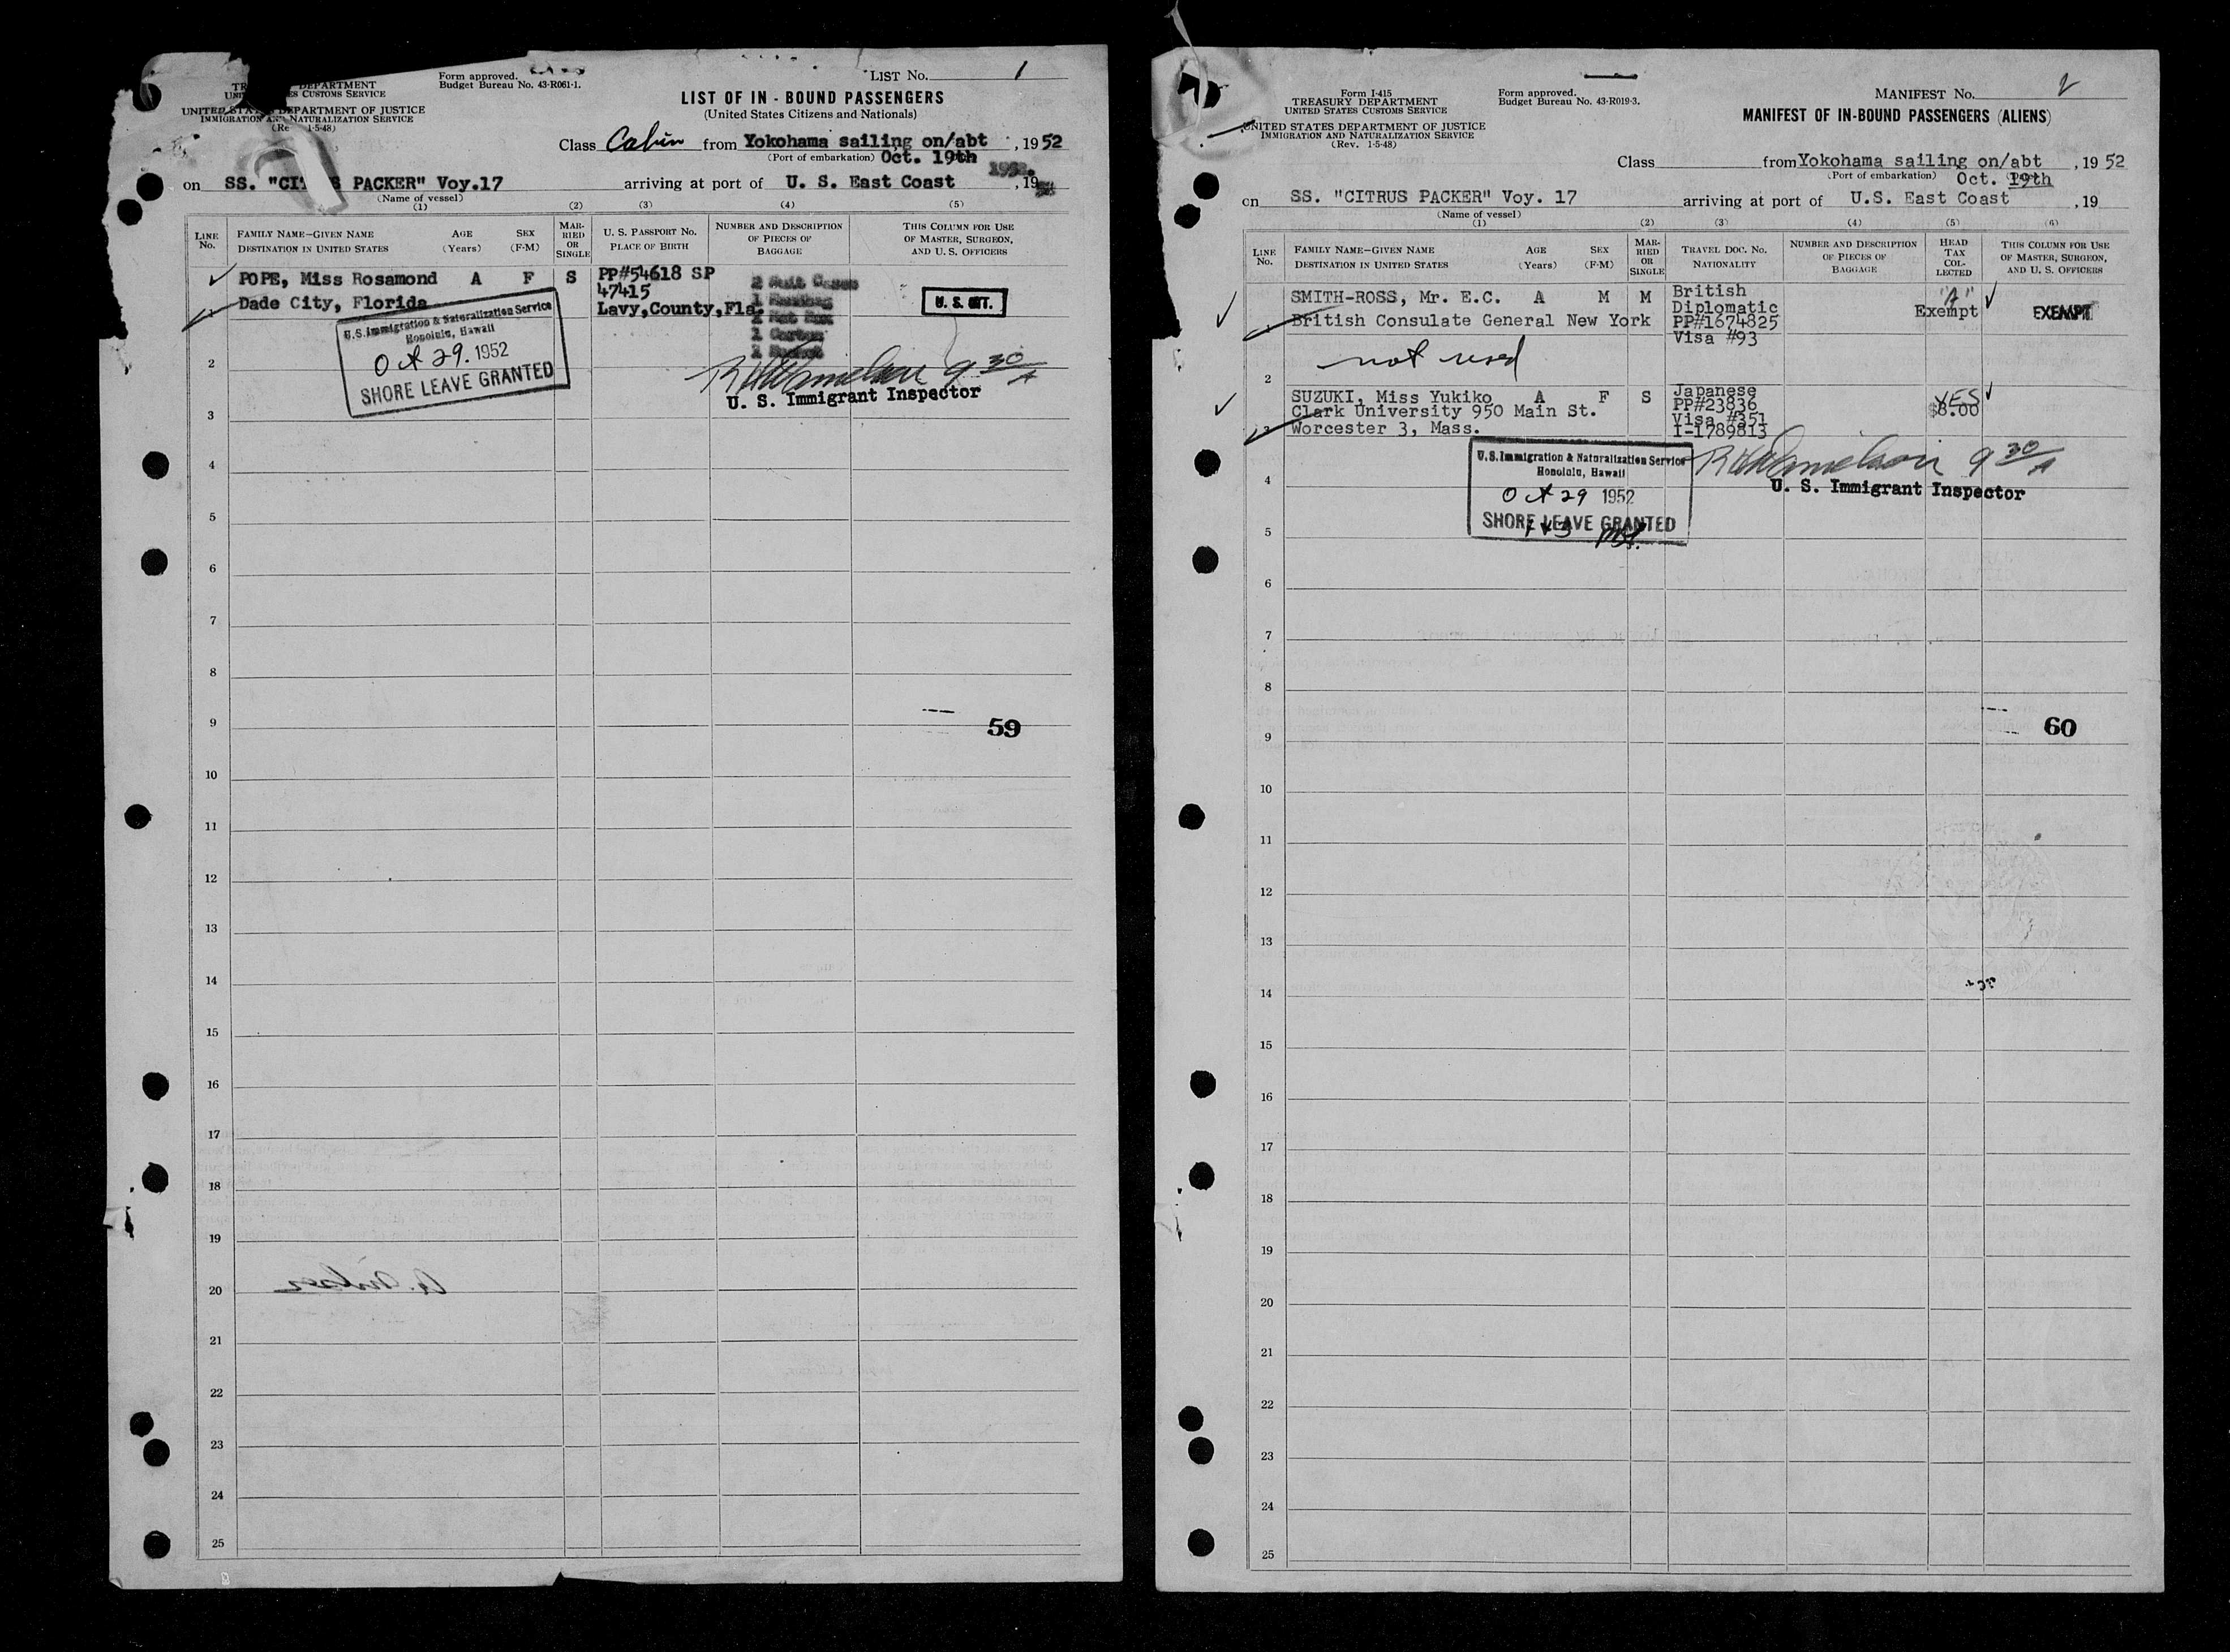 DEPARTMENT
ES CUSTOMS SERVICE
UNITED STATES DEPARTMENT OF JUSTICE
IMMIGRATION AND NATURALIZATION SERVICE
1-5-48)
Form approved.
Budget Bureau No. 43-R061-1.
LIST No. 1
LIST OF IN - BOUND PASSENGERS
(United States Citizens and Nationals)
Class Cabin from Yokohama sailing on/abt , 19 52
(Port of embarkation) Oct. 19th
on SS. "CITRUS PACKER" Voy.17 arriving at port of U. S. East Coast , 19
(Name of vessel)
(1) (2) (3) (4) (5)
LINE No.
FAMILY NAME—GIVEN NAME
DESTINATION IN UNITED STATES
AGE
(Years)
SEX
(F-M)
MAR-
RIED
OR
SINGLE
U. S. PASSPORT No.
PLACE OF BIRTH
NUMBER AND DESCRIPTION
OF PIECES OF
BAGGAGE
THIS COLUMN FOR USE
OF MASTER, SURGEON,
AND U. S. OFFICERS
POPE, Miss Rosamond A F S PP#54618 SP
47415
Dade City, Florida Lavy,County,Fla.
2 Suit Cases
1 Carton
U. S. CIT.
U.S. Immigration & Naturalization Service
Honolulu, Hawaii
Oct 29. 1952
SHORE LEAVE GRANTED
9 30 A
U. S. Immigrant Inspector
2
3
4
5
6
7
8
9
59
10
11
12
13
14
15
16
17
18
19
20
21
22
23
24
25
Form I-415
TREASURY DEPARTMENT
UNITED STATES CUSTOMS SERVICE
UNITED STATES DEPARTMENT OF JUSTICE
IMMIGRATION AND NATURALIZATION SERVICE
(Rev. 1-5-48)
Form approved.
Budget Bureau No. 43-R019-3.
MANIFEST No. 2
MANIFEST OF IN-BOUND PASSENGERS (ALIENS)
Class from Yokohama sailing on/abt , 19 52
(Port of embarkation) Oct. 19th
on SS. "CITRUS PACKER" Voy. 17 arriving at port of U.S. East Coast , 19
(Name of vessel)
(1) (2) (3) (4) (5) (6)
LINE No.
FAMILY NAME—GIVEN NAME
DESTINATION IN UNITED STATES
AGE
(Years)
SEX
(F-M)
MAR-
RIED
OR
SINGLE
TRAVEL DOC. No.
NATIONALITY
NUMBER AND DESCRIPTION
OF PIECES OF
BAGGAGE
HEAD
TAX
COL-
LECTED
THIS COLUMN FOR USE
OF MASTER, SURGEON,
AND U. S. OFFICERS
SMITH-ROSS, Mr. E.C. A M M British
Diplomatic
British Consulate General New York PP#1674825
Visa #93
"A"
Exempt
EXEMPT
not used
2
SUZUKI, Miss Yukiko A F S Japanese
PP#23836
Clark University 950 Main St. Visa #351
Worcester 3, Mass. I-1789813
YES
$8.00
3
U.S. Immigration & Naturalization Service
Honolulu, Hawaii
Oct 29 1952
SHORE LEAVE GRANTED
1 & 3
9 30 A
U. S. Immigrant Inspector
4
5
6
7
8
9
60
10
11
12
13
14
15
16
17
18
19
20
21
22
23
24
25